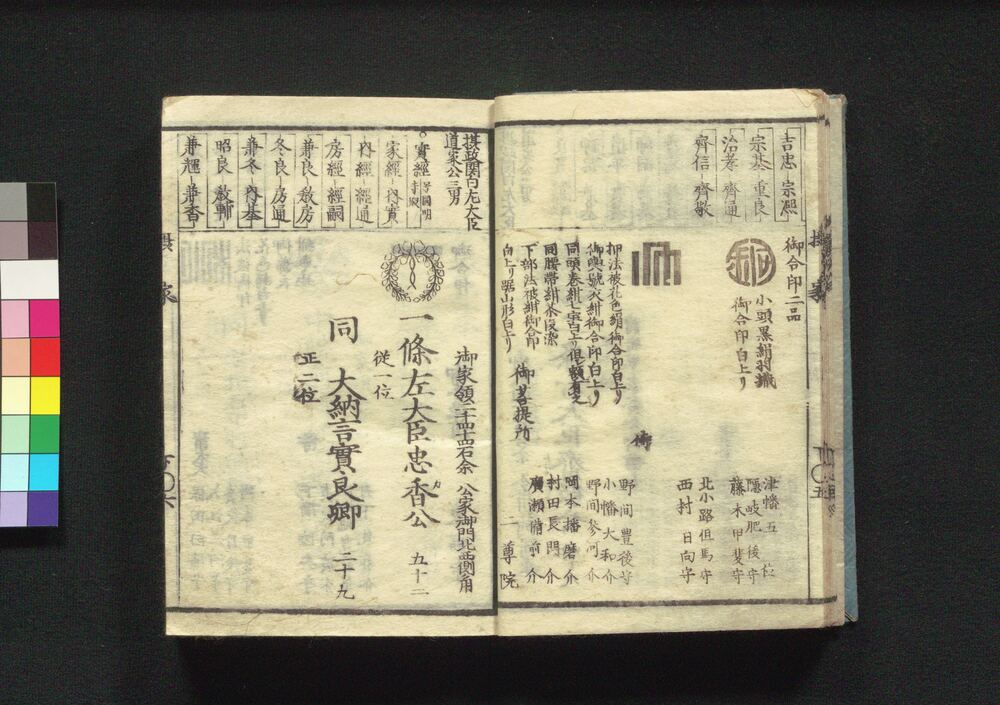 吉忠 宗凞
宗基 重良
治孝 齊通
齊信 齊敬
御合印二品
小頭黒絹羽織
御合印白上り
津幡五位
隠岐肥後守
藤木甲斐守
北小路但馬守
西村日向守
御
押法被花色絹御合印白上り
御輿號衣紺御合印白上り
同腰帯紺茶段染
下部法被紺御合印
白上り裾山形白上り
御菩提所
野間豊後守
小幡大和介
野間参河介
岡本播磨介
村田長門介
廣瀬備前介
二尊院
摂政関白左大臣
道家公三男
實經
家經 内實
内經 經通
房經 經嗣
兼良 教房
冬良 房通
兼冬 内基
昭良 教輔
兼輝 兼香
御家領二千四十四石余 公家御門北西側角
一條左大臣忠香公 五十二
従一位
同 大納言實良卿 二十九
正二位
摂
家